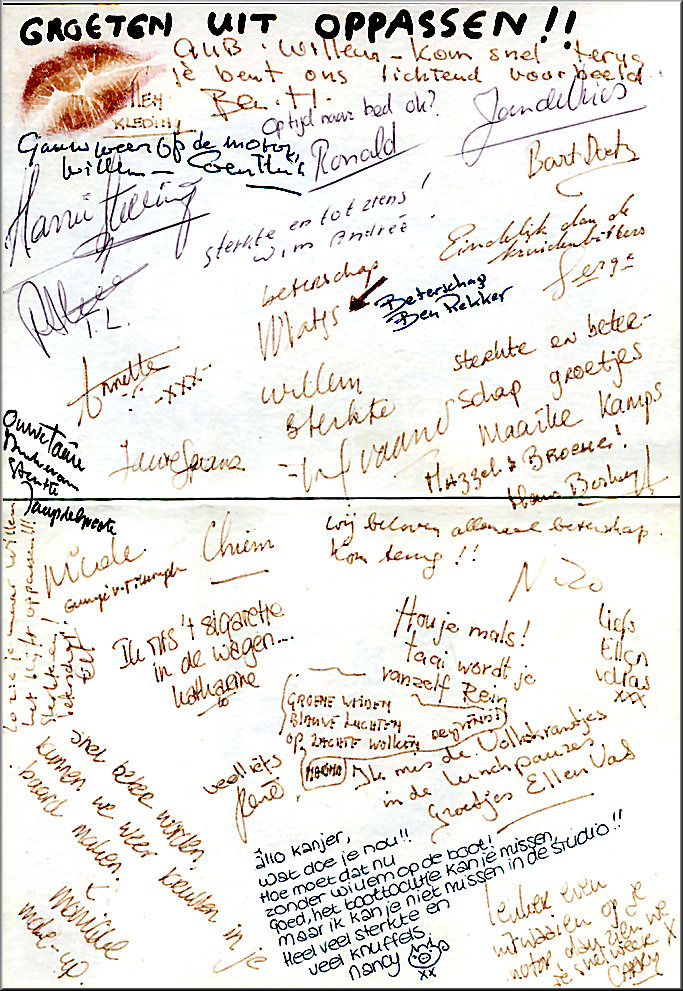 GROETEN UIT OPPASSEN!!
AUB. Willem - kom snel terug
je bent ons lichtend voorbeeld
Ben. H.
KLEDING
Op tijd naar bed ok?
Ronald
Jan de Vries
Gauw weer op de motor,
Willem -
Bart
Harrie
sterkte en tot ziens!
Wim André.
Eindelijk dan de
kruidenbitters
Serge
T.L.
beterschap
Matys
Beterschap
Ben Rekker
Annette
-xxx-
willem
Sterkte
sterkte en beter-
schap groetjes
Maaike Kamps
Mazzel & Broche!
Hans
Nicole
Chiem
wij beloven allemaal beterschap.
Kom terug!!
Nico
zo zie je maar Willem
het blijft oppassen!!!
Sterkte en
beterschap!
Elf
Ik mis 't sigarette
in de wagen....
katharine
Hou je mals!
taai wordt je
vanzelf Rein
liefs
Ellen
xxx
GROENE WEIDEN
BLAUWE LUCHTEN
OP ZACHTE WOLKEN
veel liefs
René
Ik mis de Volkskrantjes
in de lunchpauzes
Groetjes Ellen Vas
snel beter worden,
kunnen we weer krullen in je
baard maken!
x
Monique
make-up.
állo kanjer,
wat doe je nou!!
Hoe moet dat nu
zonder willem op de boot!
goed, het boottochtje kan je missen,
maar ik kan je niet missen in de studio!!
Heel veel sterkte en
veel knuffels,
Nancy
xx
lekker even
uitwaaien op de
motor, dan zien we
je snel weer x
CARRY